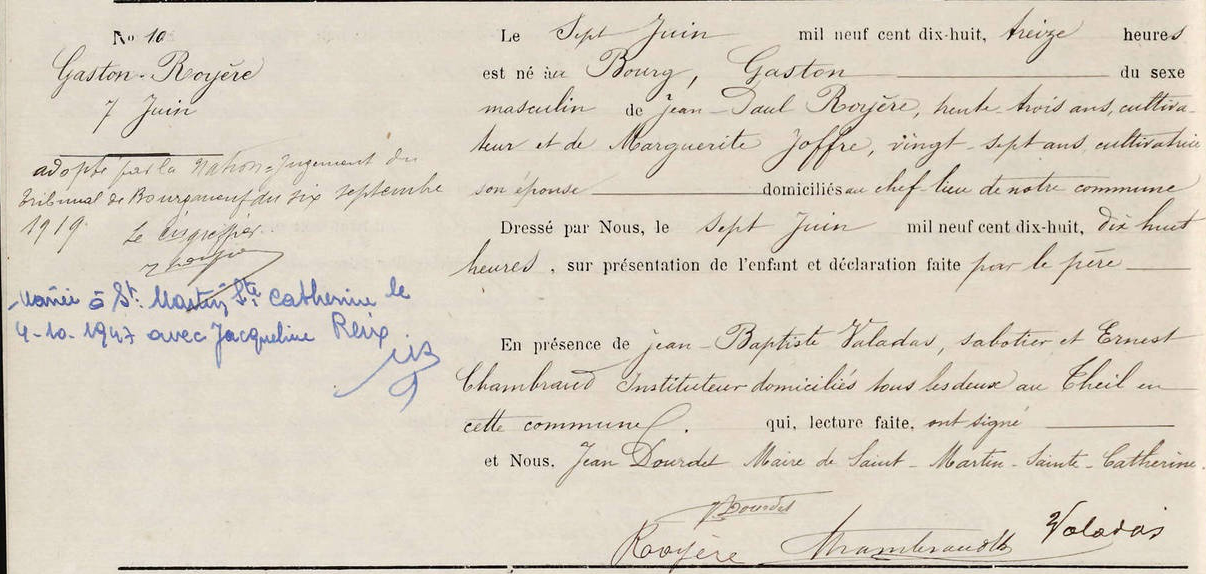 No 10
Gaston Royère
7 Juin
adopté par la Nation = Jugement du
tribunal de Bourganeuf du six septembre
1919. Le Cis greffier
Marié à St. Martin Ste Catherine le
4-10-1947 avec Jacqueline Reix
Le Sept Juin mil neuf cent dix-huit, treize heures
est né au Bourg, Gaston du sexe
masculin de Jean-Paul Royère, trente-trois ans, cultiva-
teur et de Marguerite Joffre, vingt-sept ans, cultivatrice
son épouse domiciliés au chef lieu de notre commune
Dressé par Nous, le sept Juin mil neuf cent dix-huit, dix huit
heures, sur présentation de l'enfant et déclaration faite par le père
En présence de Jean-Baptiste Valadas, sabotier et Ernest
Chambraud Instituteur domiciliés tous les deux au Theil en
cette commune. qui, lecture faite, ont signé
et Nous. Jean Dourdet Maire de Saint-Martin-Sainte-Catherine.
J Dourdet
Royère Chambraud Valadas